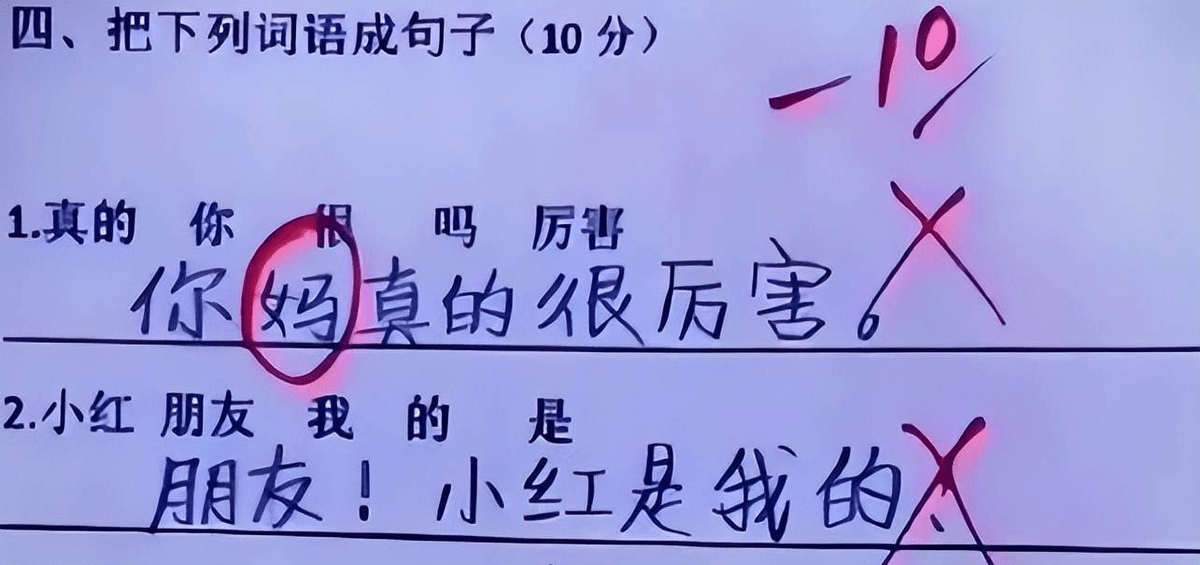 四、把下列词语成句子（10 分）
-10
1.真的 你 很 吗 厉害
你妈真的很厉害。
2.小红 朋友 我 的 是
朋友！小红是我的、